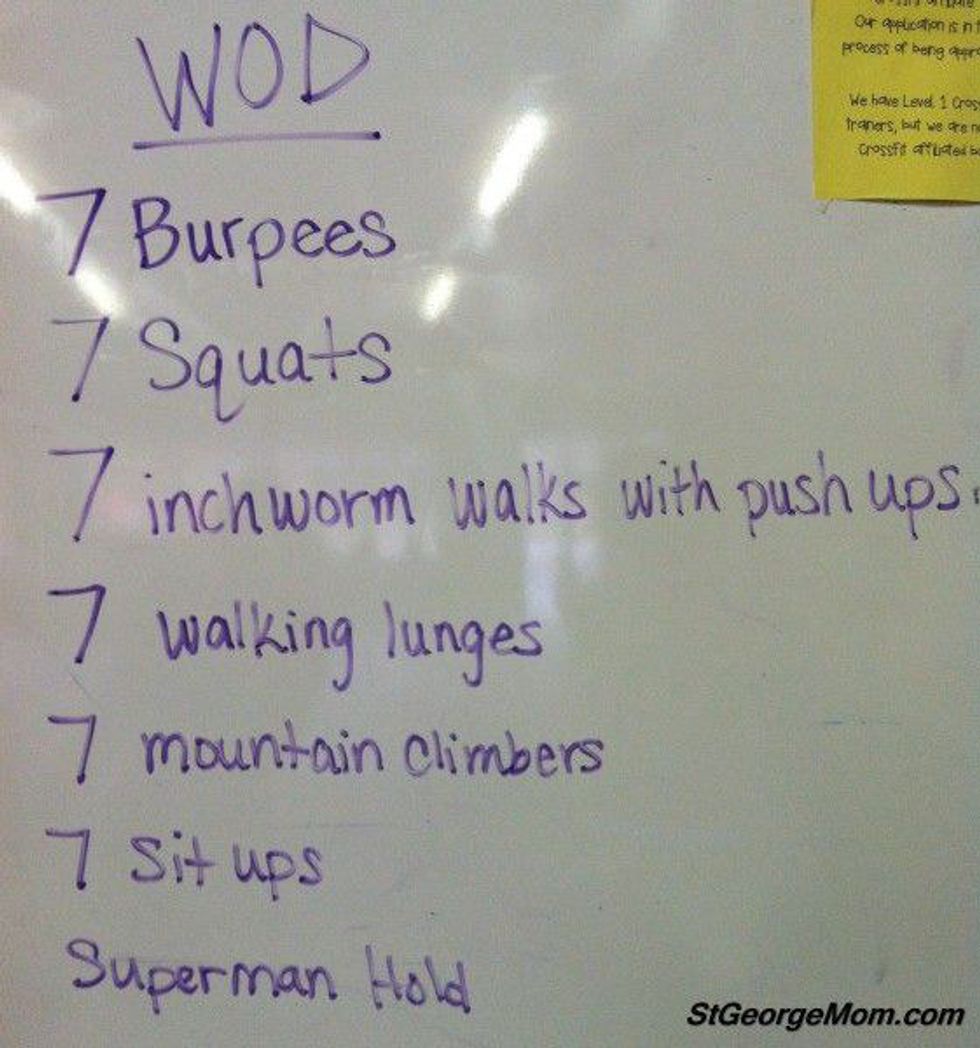 WOD
7 Burpees
7 Squats
7 inchworm walks with push ups.
7 walking lunges
7 mountain climbers
7 Sit ups
Superman Hold
Our application is in
process of being
We have Level 1
trainers, but we are
Crossfit affiliated
StGeorgeMom.com